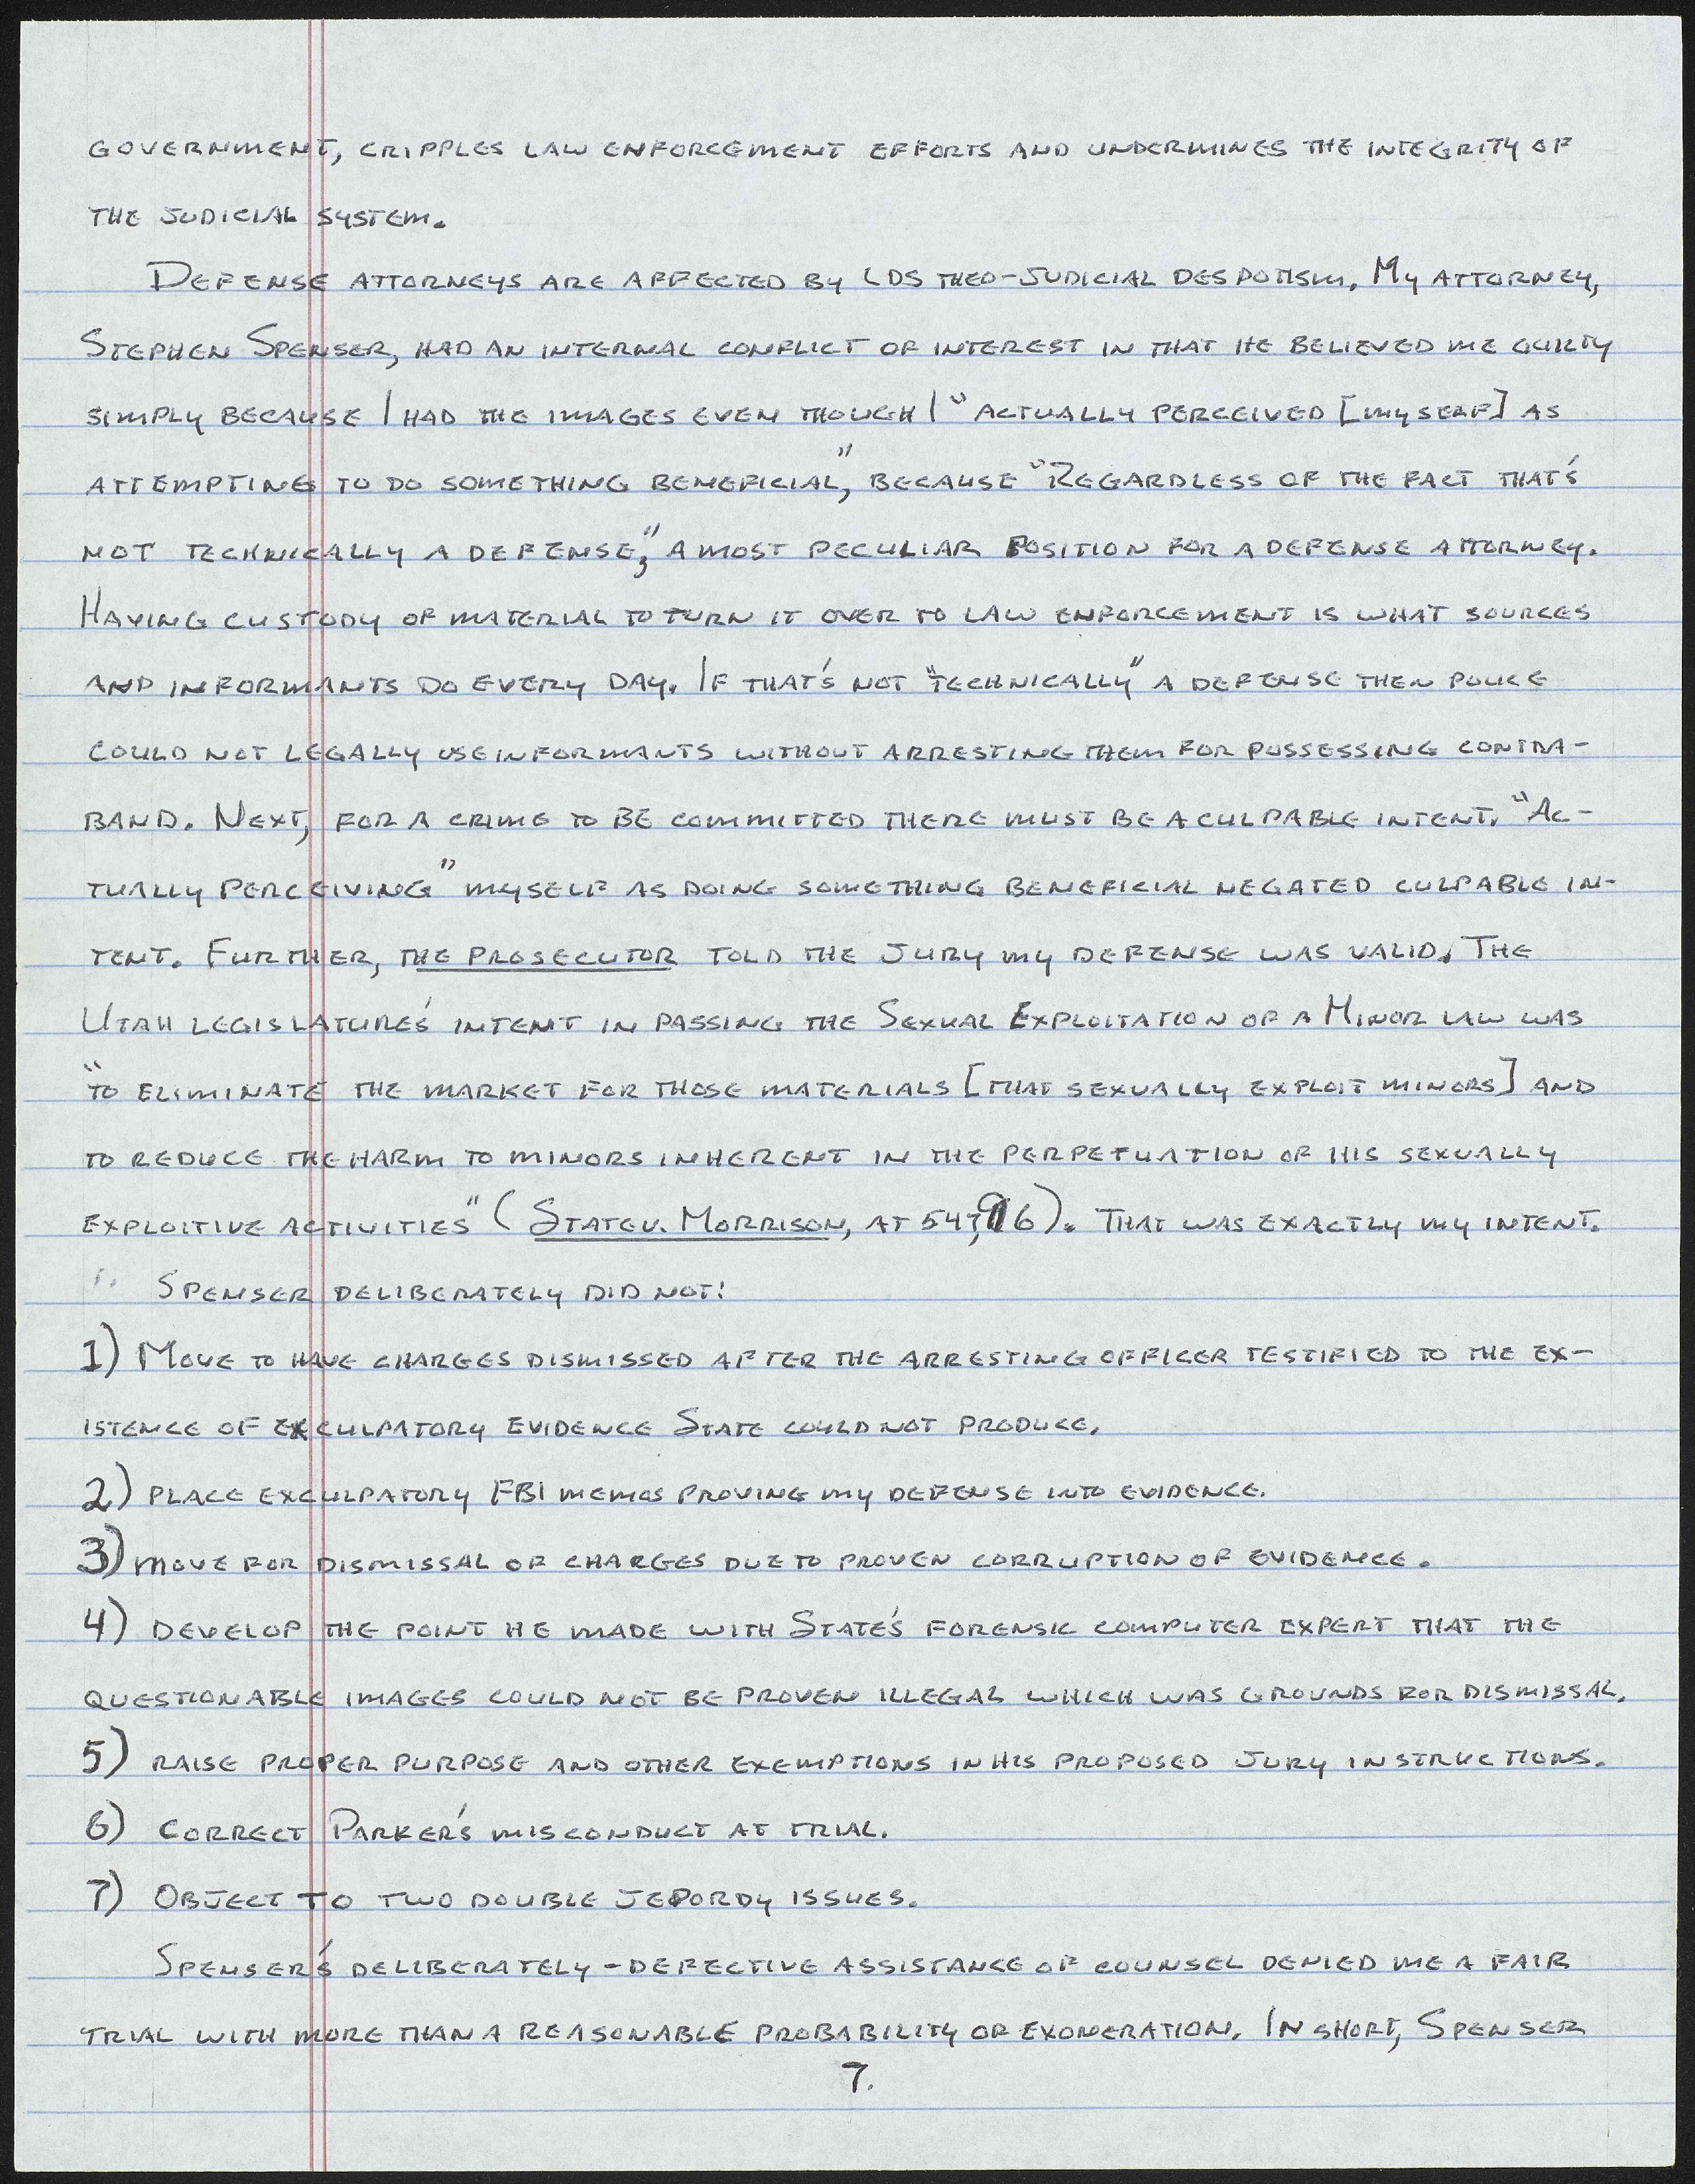 GOVERNMENT, CRIPPLES LAW ENFORCEMENT EFFORTS AND UNDERMINES THE INTEGRITY OF
THE JUDICIAL SYSTEM.
DEFENSE ATTORNEYS ARE AFFECTED BY LDS THEO-JUDICIAL DESPOTISM. MY ATTORNEY,
STEPHEN SPENSER, HAD AN INTERNAL CONFLICT OF INTEREST IN THAT HE BELIEVED ME GUILTY
SIMPLY BECAUSE I HAD THE IMAGES EVEN THOUGH I "ACTUALLY PERCEIVED [MYSELF] AS
ATTEMPTING TO DO SOMETHING BENEFICIAL," BECAUSE "REGARDLESS OF THE FACT THAT'S
NOT TECHNICALLY A DEFENSE," A MOST PECULIAR POSITION FOR A DEFENSE ATTORNEY.
HAVING CUSTODY OF MATERIAL TO TURN IT OVER TO LAW ENFORCEMENT IS WHAT SOURCES
AND INFORMANTS DO EVERY DAY. IF THAT'S NOT "TECHNICALLY" A DEFENSE THEN POLICE
COULD NOT LEGALLY USE INFORMANTS WITHOUT ARRESTING THEM FOR POSSESSING CONTRA-
BAND. NEXT, FOR A CRIME TO BE COMMITTED THERE MUST BE A CULPABLE INTENT. "AC-
TUALLY PERCEIVING" MYSELF AS DOING SOMETHING BENEFICIAL NEGATED CULPABLE IN-
TENT. FURTHER, THE PROSECUTOR TOLD THE JURY MY DEFENSE WAS VALID. THE
UTAH LEGISLATURE'S INTENT IN PASSING THE SEXUAL EXPLOITATION OF A MINOR LAW WAS
"TO ELIMINATE THE MARKET FOR THOSE MATERIALS [THAT SEXUALLY EXPLOIT MINORS] AND
TO REDUCE THE HARM TO MINORS INHERENT IN THE PERPETUATION OF HIS SEXUALLY
EXPLOITIVE ACTIVITIES" (STATE V. MORRISON, AT 547, 96). THAT WAS EXACTLY MY INTENT.
SPENSER DELIBERATELY DID NOT:
1) MOVE TO HAVE CHARGES DISMISSED AFTER THE ARRESTING OFFICER TESTIFIED TO THE EX-
ISTENCE OF EXCULPATORY EVIDENCE STATE COULD NOT PRODUCE.
2) PLACE EXCULPATORY FBI MEMOS PROVING MY DEFENSE INTO EVIDENCE.
3) MOVE FOR DISMISSAL OF CHARGES DUE TO PROVEN CORRUPTION OF EVIDENCE.
4) DEVELOP THE POINT HE MADE WITH STATE'S FORENSIC COMPUTER EXPERT THAT THE
QUESTIONABLE IMAGES COULD NOT BE PROVEN ILLEGAL WHICH WAS GROUNDS FOR DISMISSAL.
5) RAISE PROPER PURPOSE AND OTHER EXEMPTIONS IN HIS PROPOSED JURY INSTRUCTIONS.
6) CORRECT PARKER'S MISCONDUCT AT TRIAL.
7) OBJECT TO TWO DOUBLE JEPORDY ISSUES.
SPENSER'S DELIBERATELY-DEFECTIVE ASSISTANCE OF COUNSEL DENIED ME A FAIR
TRIAL WITH MORE THAN A REASONABLE PROBABILITY OF EXONERATION. IN SHORT, SPENSER
7.